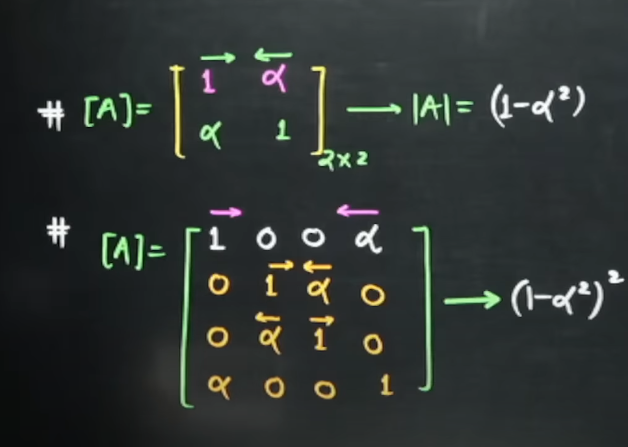 # [A]= [ 1 α
α 1 ]2x2 → |A|= (1-α²)
# [A]= [ 1 0 0 α
0 1 α 0
0 α 1 0
α 0 0 1 ] → (1-α²)²